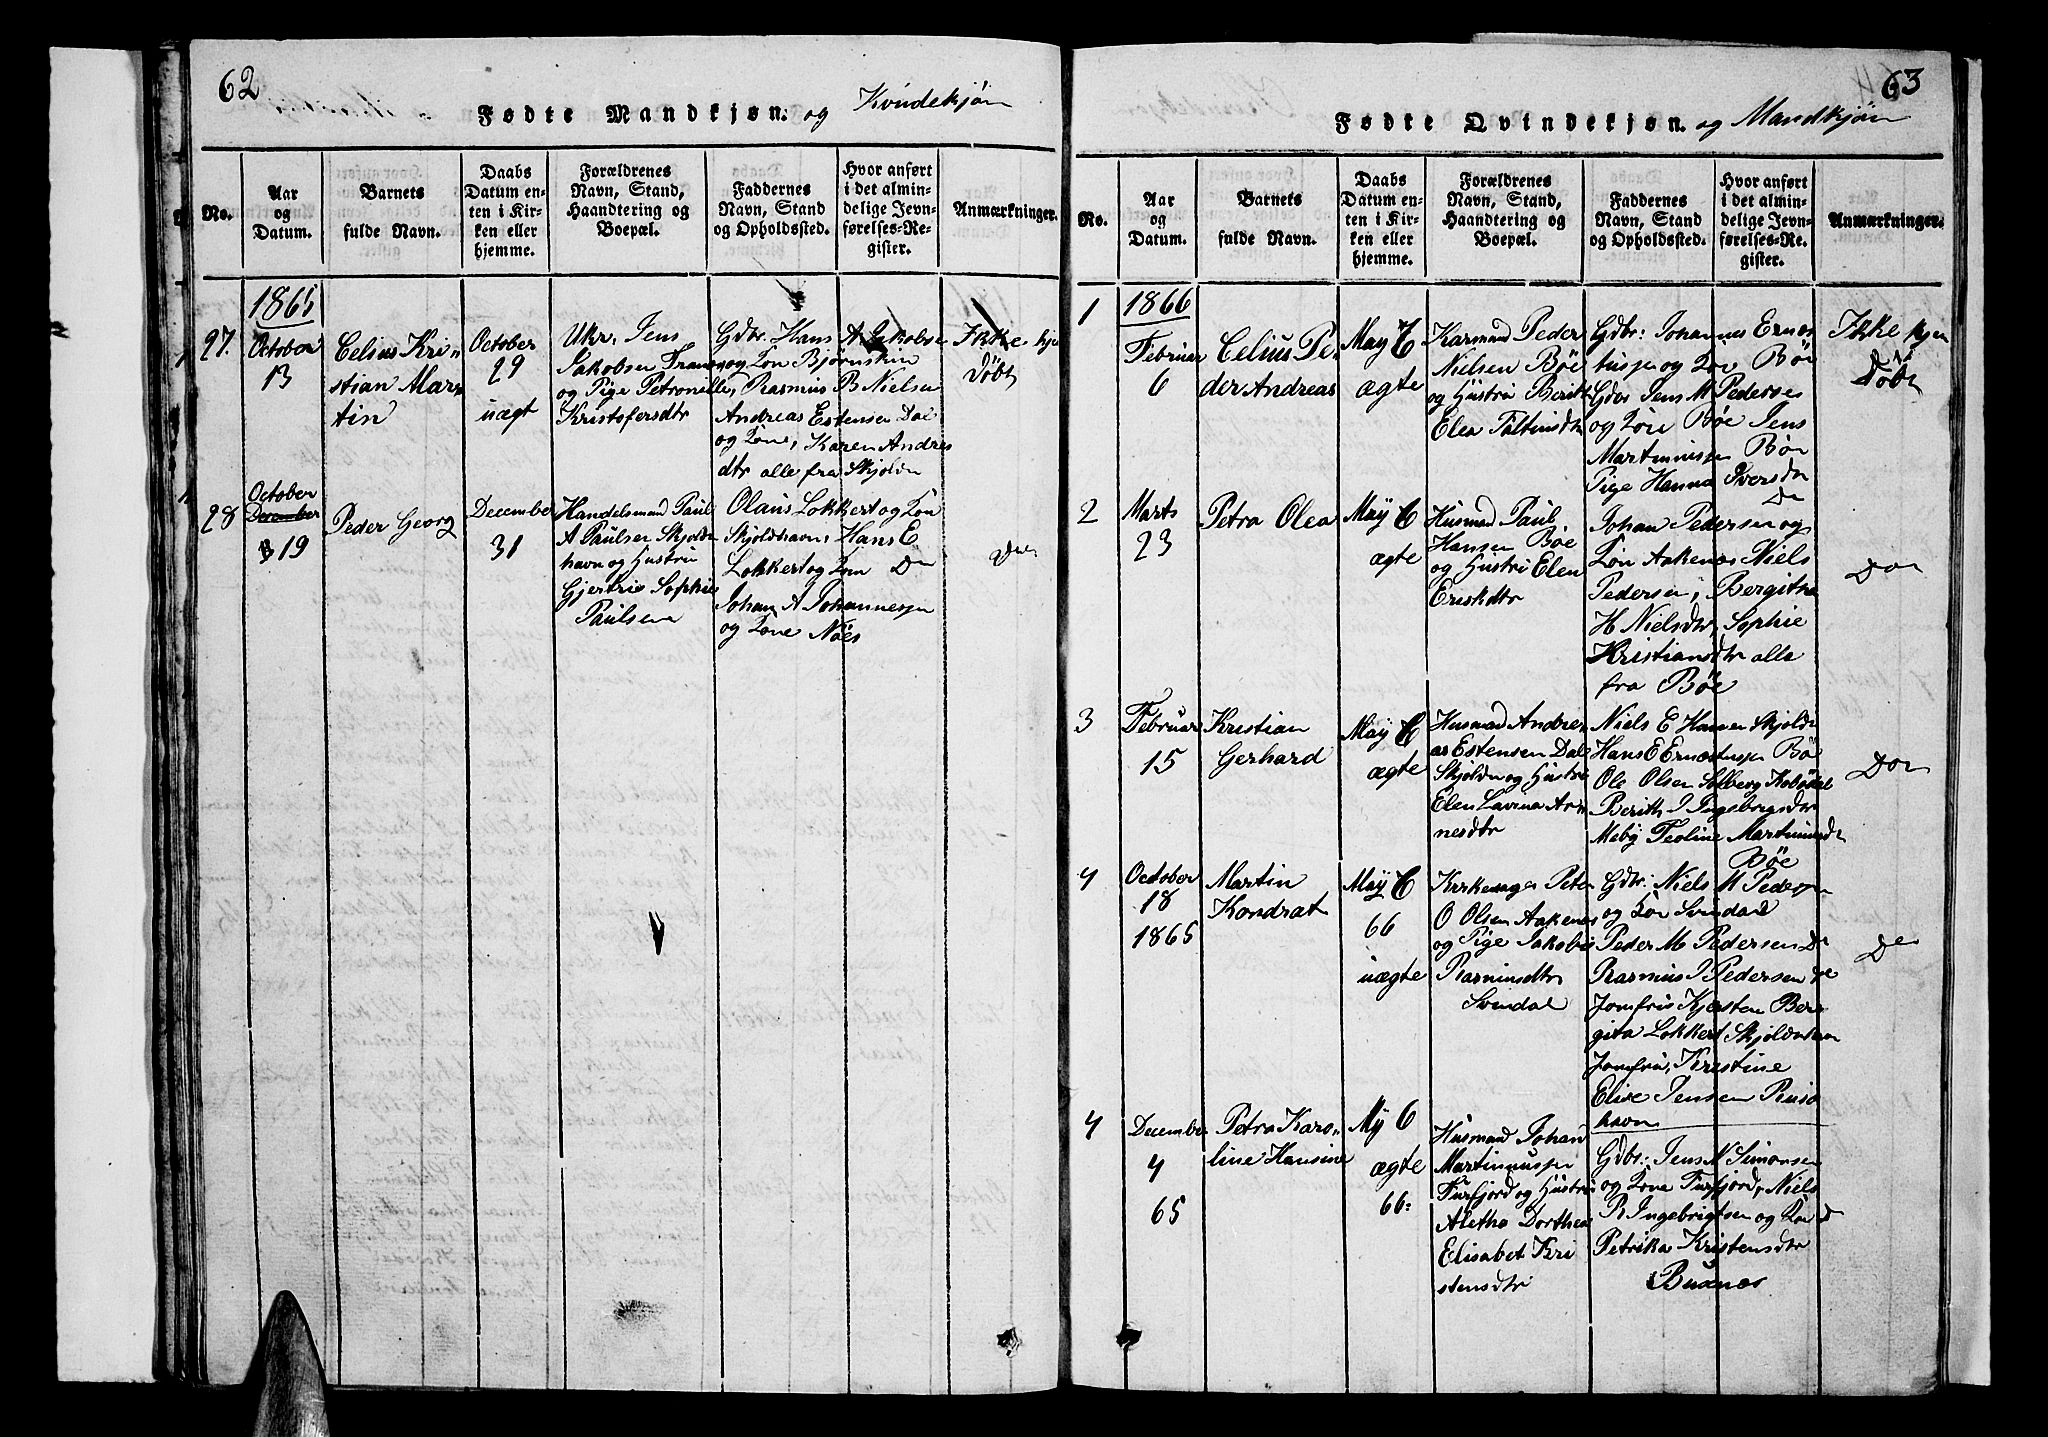 62
Fødte Mandkjøn. og Kvindekjøn
No.
Aar
og
Datum.
Barnets
fulde Navn.
Daabs
Datum en-
ten i Kir-
ken eller
hjemme.
Forældrenes
Navn, Stand,
Haandtering og
Boepæl.
Faddernes
Navn, Stand
og Opholdssted.
Hvor anført
i det almin-
delige Jevn-
førelses-Re-
gister.
Anmærkninger.
1865
27.
October
13
Celius Kri-
stian Mar-
tin
October
29
uægt
Ukr. Jens
Jakobsen
og Pige Petronille
Kristofersdtr
Gdbr. Hans A Jakobsen
og Kone Bjørnskin
Rasmus B Nielsen
Andreas Estensen Dal
og Kone, Karen Andreas
dtr alle fra Skjolden
Ikke hje
Døbt
28
October
December
19
Peder Georg
December
31
Handelsmand Paul
A Paulsen Skjolde
havn og Hustru
Gjertrie Sophie
Paulsen
Olaus Lokkert og Kon
Skjoldhavn, Hans E
Lokkert og Kon Do
Johan A Johannesen
og Kone Nöes
Do
63
Fødte Qvindekjøn. og Mandkjøn
No.
Aar
og
Datum.
Barnets
fulde Navn.
Daabs
Datum en-
ten i Kir-
ken eller
hjemme.
Forældrenes
Navn, Stand,
Haandtering og
Boepæl.
Faddernes
Navn, Stand
og Opholdssted.
Hvor anført
i det almin-
delige Jevn-
førelses-Re-
gister.
Anmærkninger.
1
1866
Februar
6
Celius Pe-
der Andreas
May C
ægte
Karmand Peder
Nielsen Böe
og Hustru Berith
Elea Taltinsdtr
Gdbr: Johannes Ernes
tusen og Kon Böe
Gdbr Jens M Pedersen
og Kone Böe Jens
Martinusen Böe
Pige Hanna Iversdtr
Do
Ikke hjem
Døbt
2
Marts
23
Petra Olea
May C
ægte
Husmand Paul
Hansen Böe
og Hustru Elen
Erikdtr
Johan Pedersen og
Kon Aakenes Niels
Pedersen, Bergitha
H Nielsdtr, Sophie
Kristiansdtr alle
fra Böe
Do
3
Februar
15
Kristian
Gerhard
May C
ægte
Husmand Andre-
as Estensen Dal
Skjolden og Hustru
Elen Lavina Ar-
nesdtr
Niels E Hansen Skjolden
Hans E Ernestusen Böe
Ole Olsen Solberg Kobødal
Berith I Ingebrigsdtr
Meby Teoline Martinusdtr
Böe
Do
4
October
18
1865
Martin
Kondrat
May C
66
uægte
Kirkesager Peter
O Olsen Aakenes
og Pige Jakobin
Rasmusdtr
Svindal
Gdbr: Niels M Pedersen
og Kon Svindal
Peder M Pedersen Do
Rasmus I Pedersen Do
Jomfru Kjersten Ber
gita Lokkert Skjoldehavn
Jomfru, Kristine
Elise Jensen Riiso
havn
Do
4
December
4
65
Petra Karo-
line Hansine
My C
ægte
66:
Husmand Johan
Martinusen
Furfjord og Hustru
Aletha Dorthea
Elisabet Kri
stensdtr
Gdbr: Jens N Simonsen
og Kone Furfjord, Niels
R Ingebrigtsen og Kon Do
Petrika Kristensdtr
Buknes